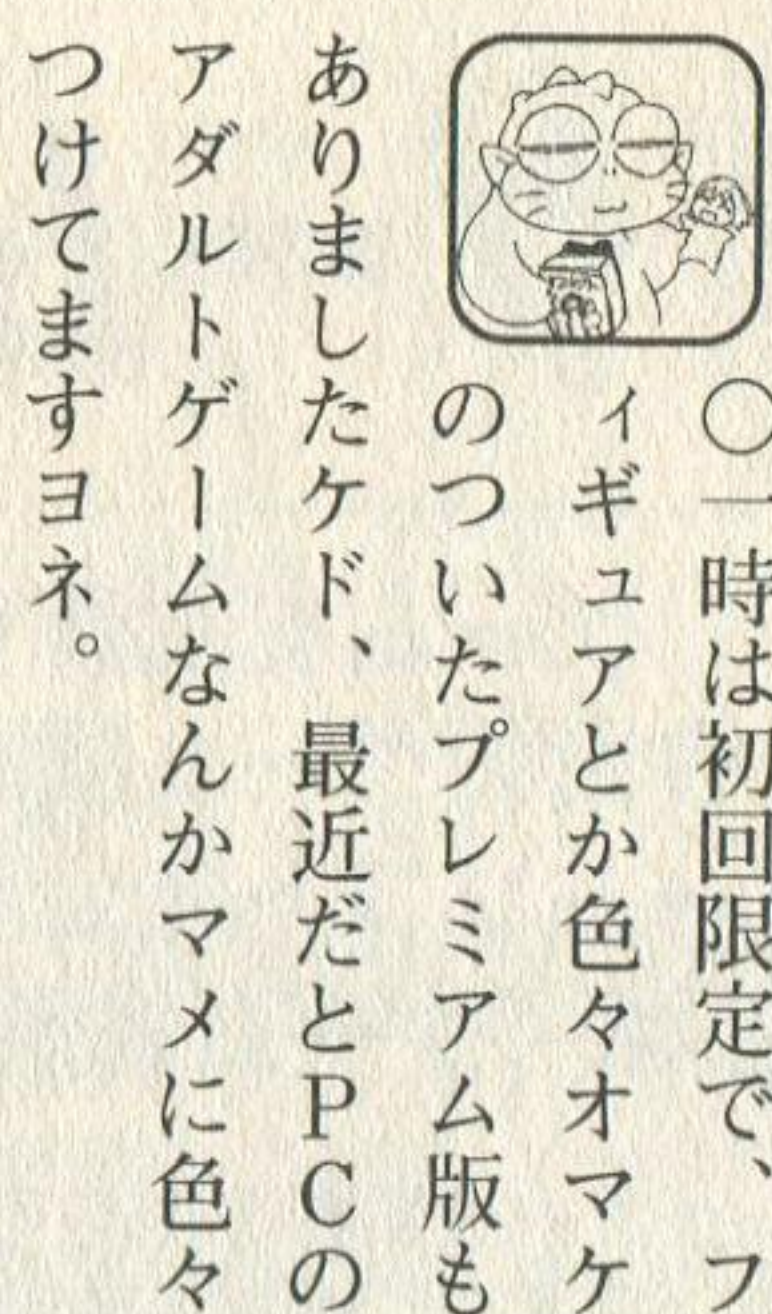 ○一時は初回限定で、フ
ィギュアとか色々オマケ
のついたプレミアム版も
ありましたケド、最近だとPCの
アダルトゲームなんかマメに色々
つけてますヨネ。